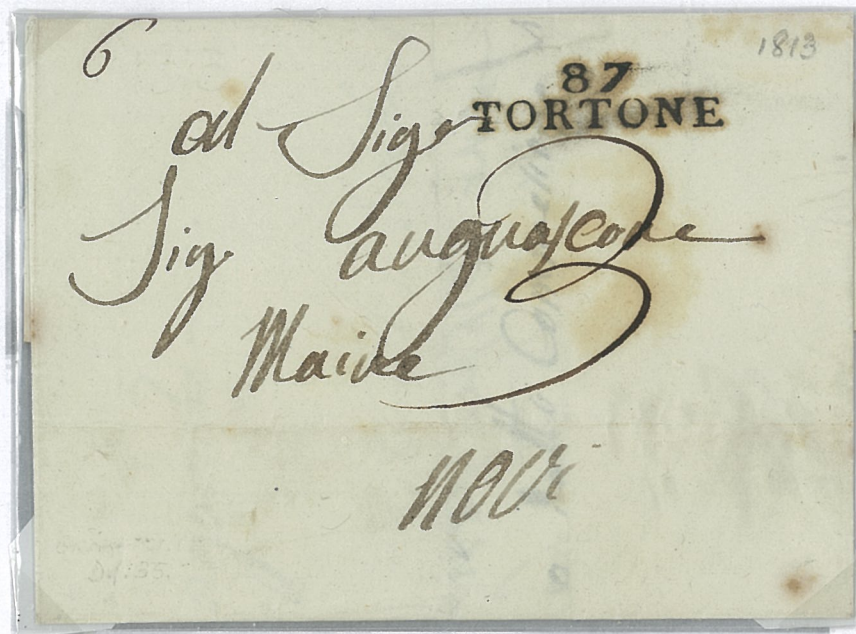 6
1813
87
TORTONE
al Sigr
Sig. auguascone
Maire
novi